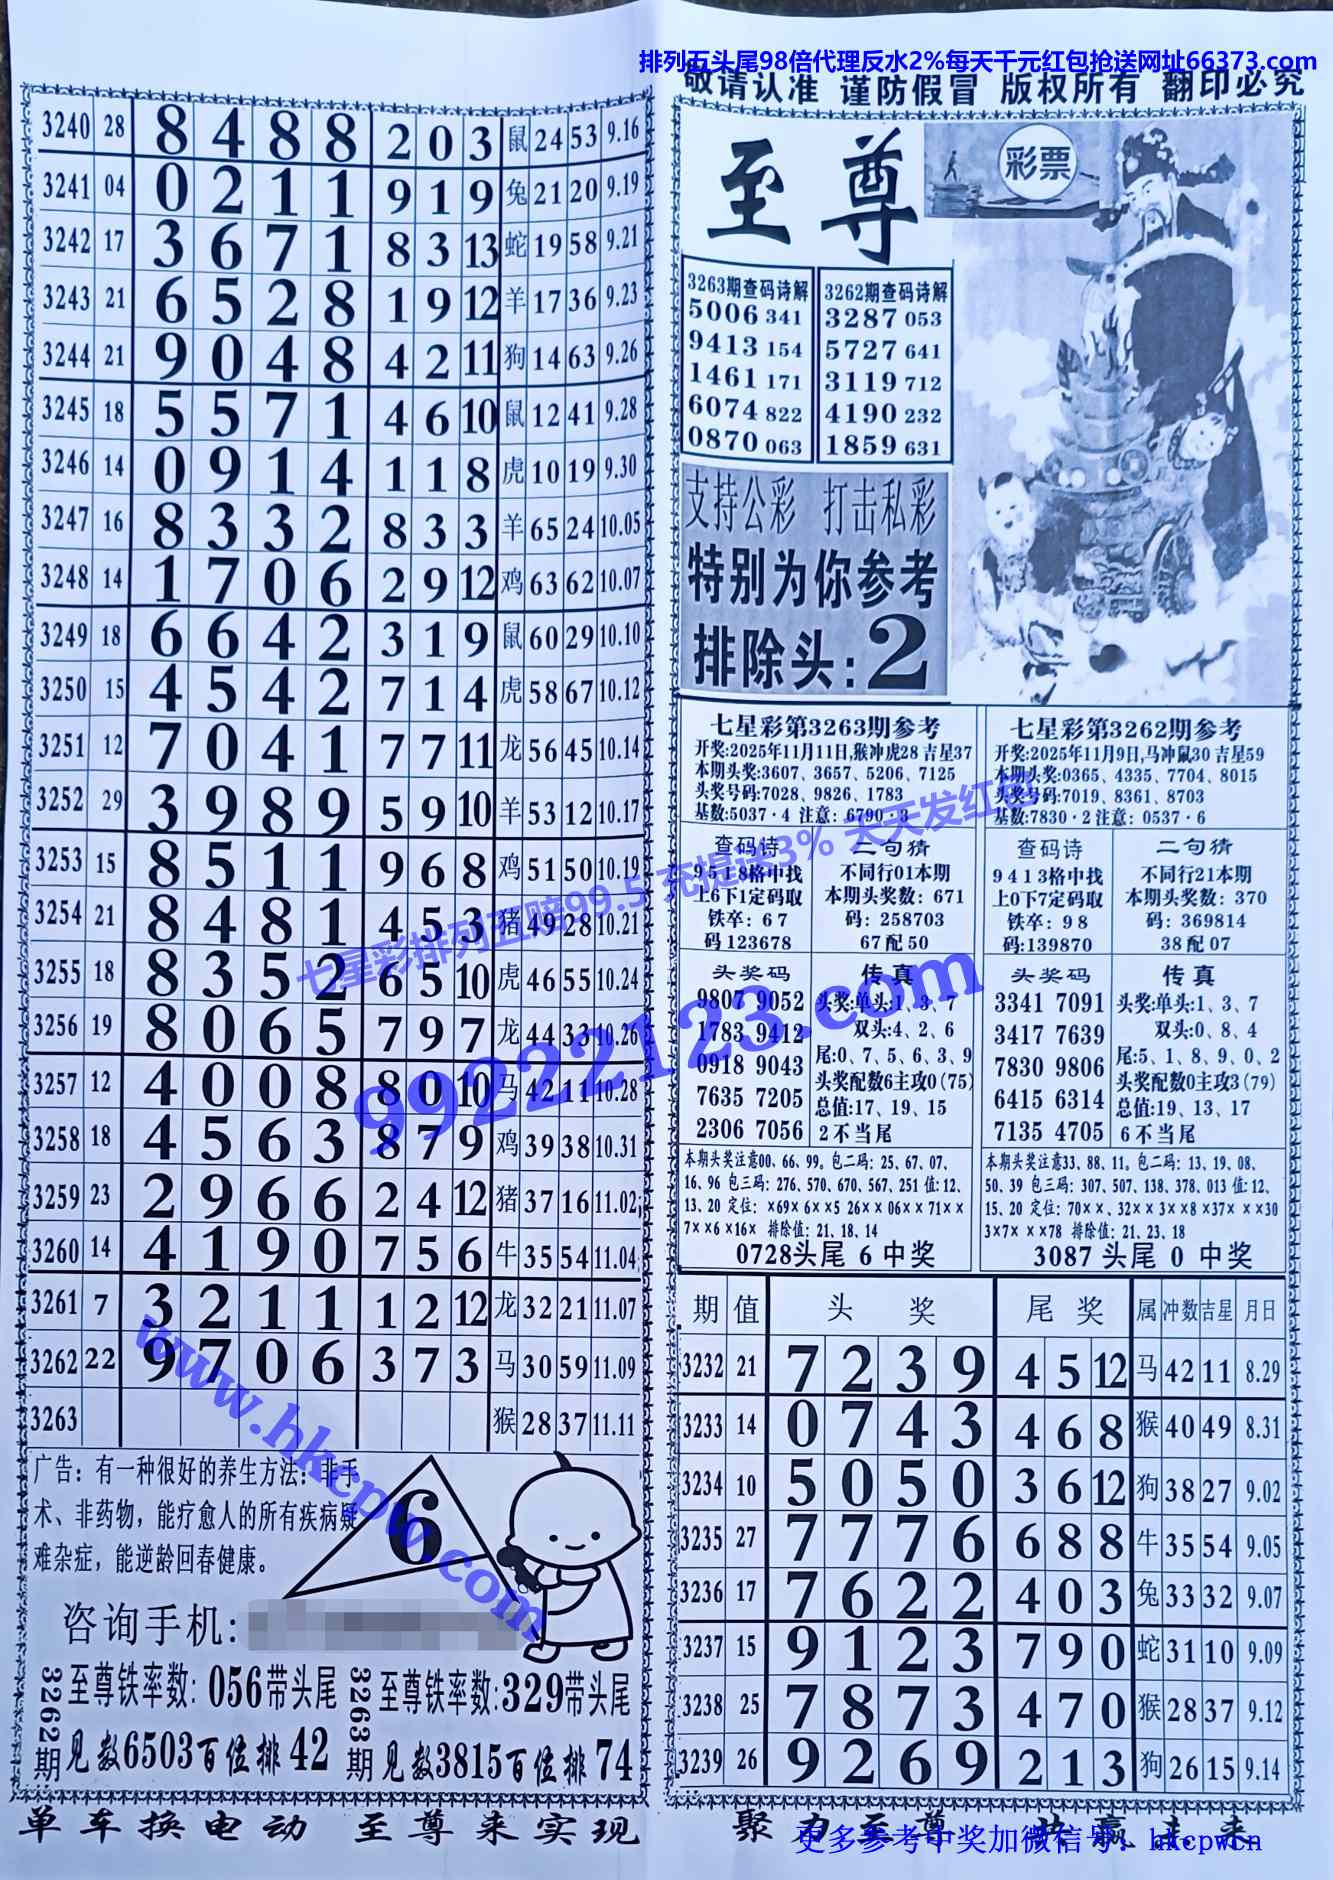 排列五头尾98倍代理反水2%每天千元红包抢送网址66373.com
敬请认准 谨防假冒 版权所有 翻印必究
3240 28 8 4 8 8 2 0 3 鼠 24 53 9.16
3241 04 0 2 1 1 9 1 9 兔 21 20 9.19
3242 17 3 6 7 1 8 3 13 蛇 19 58 9.21
3243 21 6 5 2 8 1 9 12 羊 17 36 9.23
3244 21 9 0 4 8 4 2 11 狗 14 63 9.26
3245 18 5 5 7 1 4 6 10 鼠 12 41 9.28
3246 14 0 9 1 4 1 1 8 虎 10 19 9.30
3247 16 8 3 3 2 8 3 3 羊 65 24 10.05
3248 14 1 7 0 6 2 9 12 鸡 63 62 10.07
3249 18 6 6 4 2 3 1 9 鼠 60 29 10.10
3250 15 4 5 4 2 7 1 4 虎 58 67 10.12
3251 12 7 0 4 1 7 7 11 龙 56 45 10.14
3252 29 3 9 8 9 5 9 10 羊 53 12 10.17
3253 15 8 5 1 1 9 6 8 鸡 51 50 10.19
3254 21 8 4 8 1 4 5 3 猪 49 28 10.21
3255 18 8 3 5 2 6 5 10 虎 46 55 10.24
3256 19 8 0 6 5 7 9 7 龙 44 33 10.26
3257 12 4 0 0 8 8 0 10 马 42 11 10.28
3258 18 4 5 6 3 8 7 9 鸡 39 38 10.31
3259 23 2 9 6 6 2 4 12 猪 37 16 11.02
3260 14 4 1 9 0 7 5 6 牛 35 54 11.04
3261 7 3 2 1 1 1 2 12 龙 32 21 11.07
3262 22 9 7 0 6 3 7 3 马 30 59 11.09
3263 猴 28 37 11.11
广告：有一种很好的养生方法：非手
术、非药物，能疗愈人的所有疾病疑
难杂症，能逆龄回春健康。
6
咨询手机：
3262期 至尊铁率数：056带头尾
见数6503百位排 42
3263期 至尊铁率数：329带头尾
见数3815百位排 74
单车换电动 至尊来实现
至尊
彩票
3263期查码诗解
5006 341
9413 154
1461 171
6074 822
0870 063
3262期查码诗解
3287 053
5727 641
3119 712
4190 232
1859 631
支持公彩 打击私彩
特别为你参考
排除头：2
七星彩第3263期参考
开奖:2025年11月11日,猴冲虎28 吉星37
本期头奖:3607、3657、5206、7125
头奖号码:7028、9826、1783
基数:5037·4 注意：6790·3
查码诗
9518格中找
上6下1定码取
铁卒：67
码123678
二句猜
不同行01本期
本期头奖数：671
码：258703
67配50
头奖码
9807 9052
1783 9412
0918 9043
7635 7205
2306 7056
传真
头奖:单头:1、3、7
双头:4、2、6
尾:0、7、5、6、3、9
头奖配数6主攻0(75)
总值:17、19、15
2不当尾
本期头奖注意00、66、99。包二码：25、67、07、
16、96 包三码：276、570、670、567、251 值:12、
13、20 定位：×69×6××5 26××06××71××
7××6×16× 排除值：21、18、14
0728头尾 6 中奖
七星彩第3262期参考
开奖:2025年11月9日,马冲鼠30 吉星59
本期头奖:0365、4335、7704、8015
头奖号码:7019、8361、8703
基数:7830·2 注意：0537·6
查码诗
9413格中找
上0下7定码取
铁卒：98
码:139870
二句猜
不同行21本期
本期头奖数：370
码：369814
38配07
头奖码
3341 7091
3417 7639
7830 9806
6415 6314
7135 4705
传真
头奖:单头:1、3、7
双头:0、8、4
尾:5、1、8、9、0、2
头奖配数0主攻3(79)
总值:19、13、17
6不当尾
本期头奖注意33、88、11。包二码：13、19、08、
50、39 包三码：307、507、138、378、013 值:12、
15、20 定位：70××、32××3××8×37×××30
3×7×××78 排除值：21、23、18
3087 头尾 0 中奖
期 值 头奖 尾奖 属 冲数 吉星 月日
3232 21 7 2 3 9 4 5 12 马 42 11 8.29
3233 14 0 7 4 3 4 6 8 猴 40 49 8.31
3234 10 5 0 5 0 3 6 12 狗 38 27 9.02
3235 27 7 7 7 6 6 8 8 牛 35 54 9.05
3236 17 7 6 2 2 4 0 3 兔 33 32 9.07
3237 15 9 1 2 3 7 9 0 蛇 31 10 9.09
3238 25 7 8 7 3 4 7 0 猴 28 37 9.12
3239 26 9 2 6 9 2 1 3 狗 26 15 9.14
聚力至尊 共赢未来
更多参考中奖加微信号：hkcpwcn
七星彩排列五赔99.5 充提送3% 天天发红包
99222123.com
www.hkcpw.com